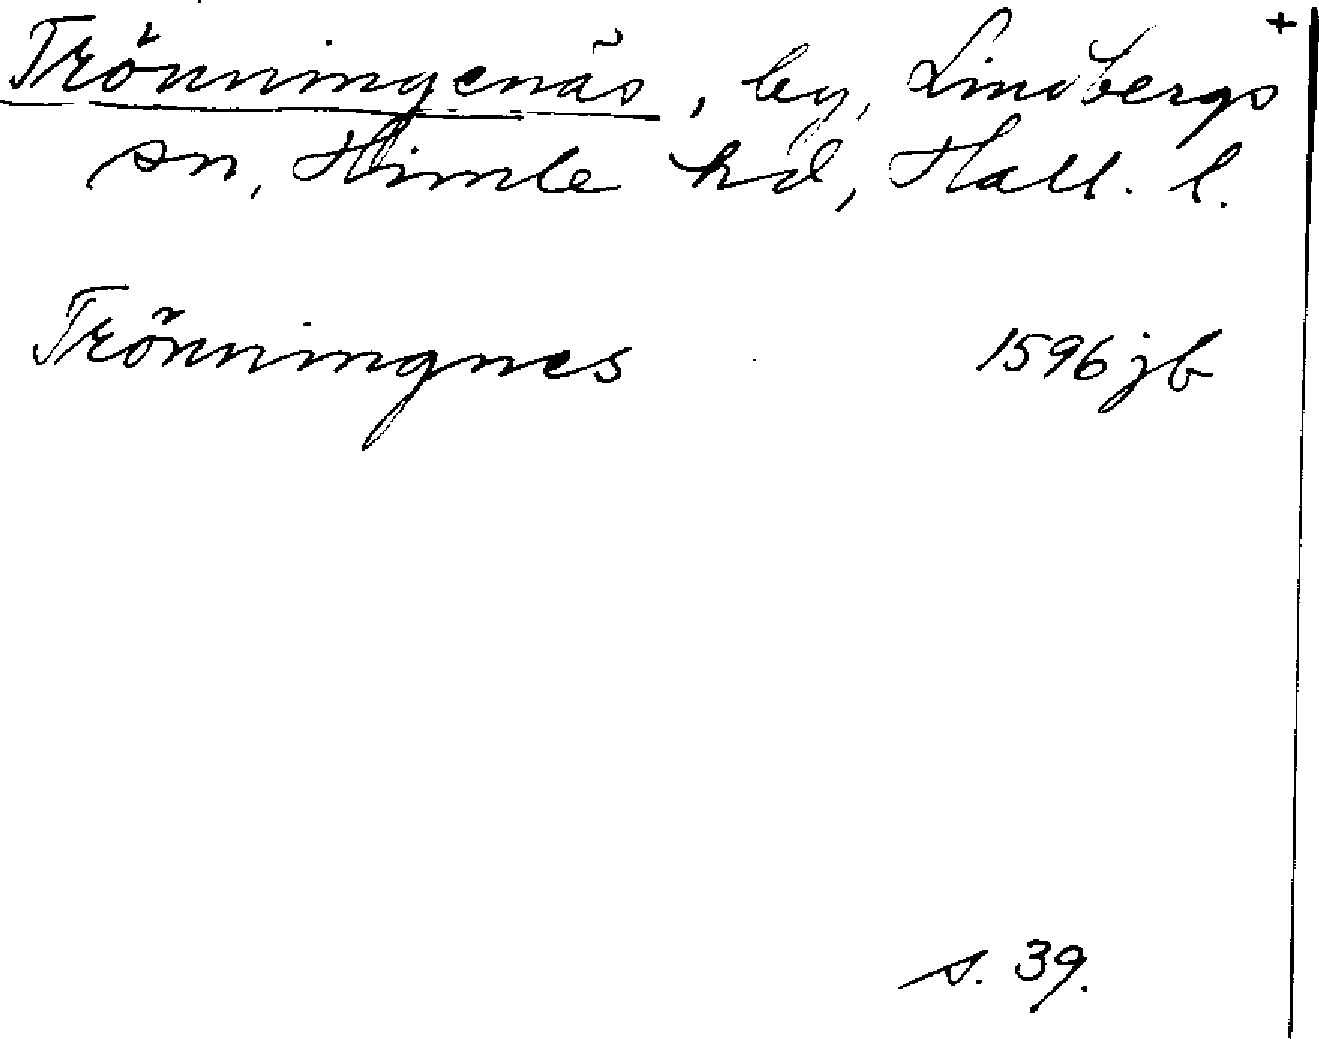 Trönningenäs, by, Lindbergs +
sn, Himle hd, Hall. l.
Trönningnes 1596 jb
s. 39.